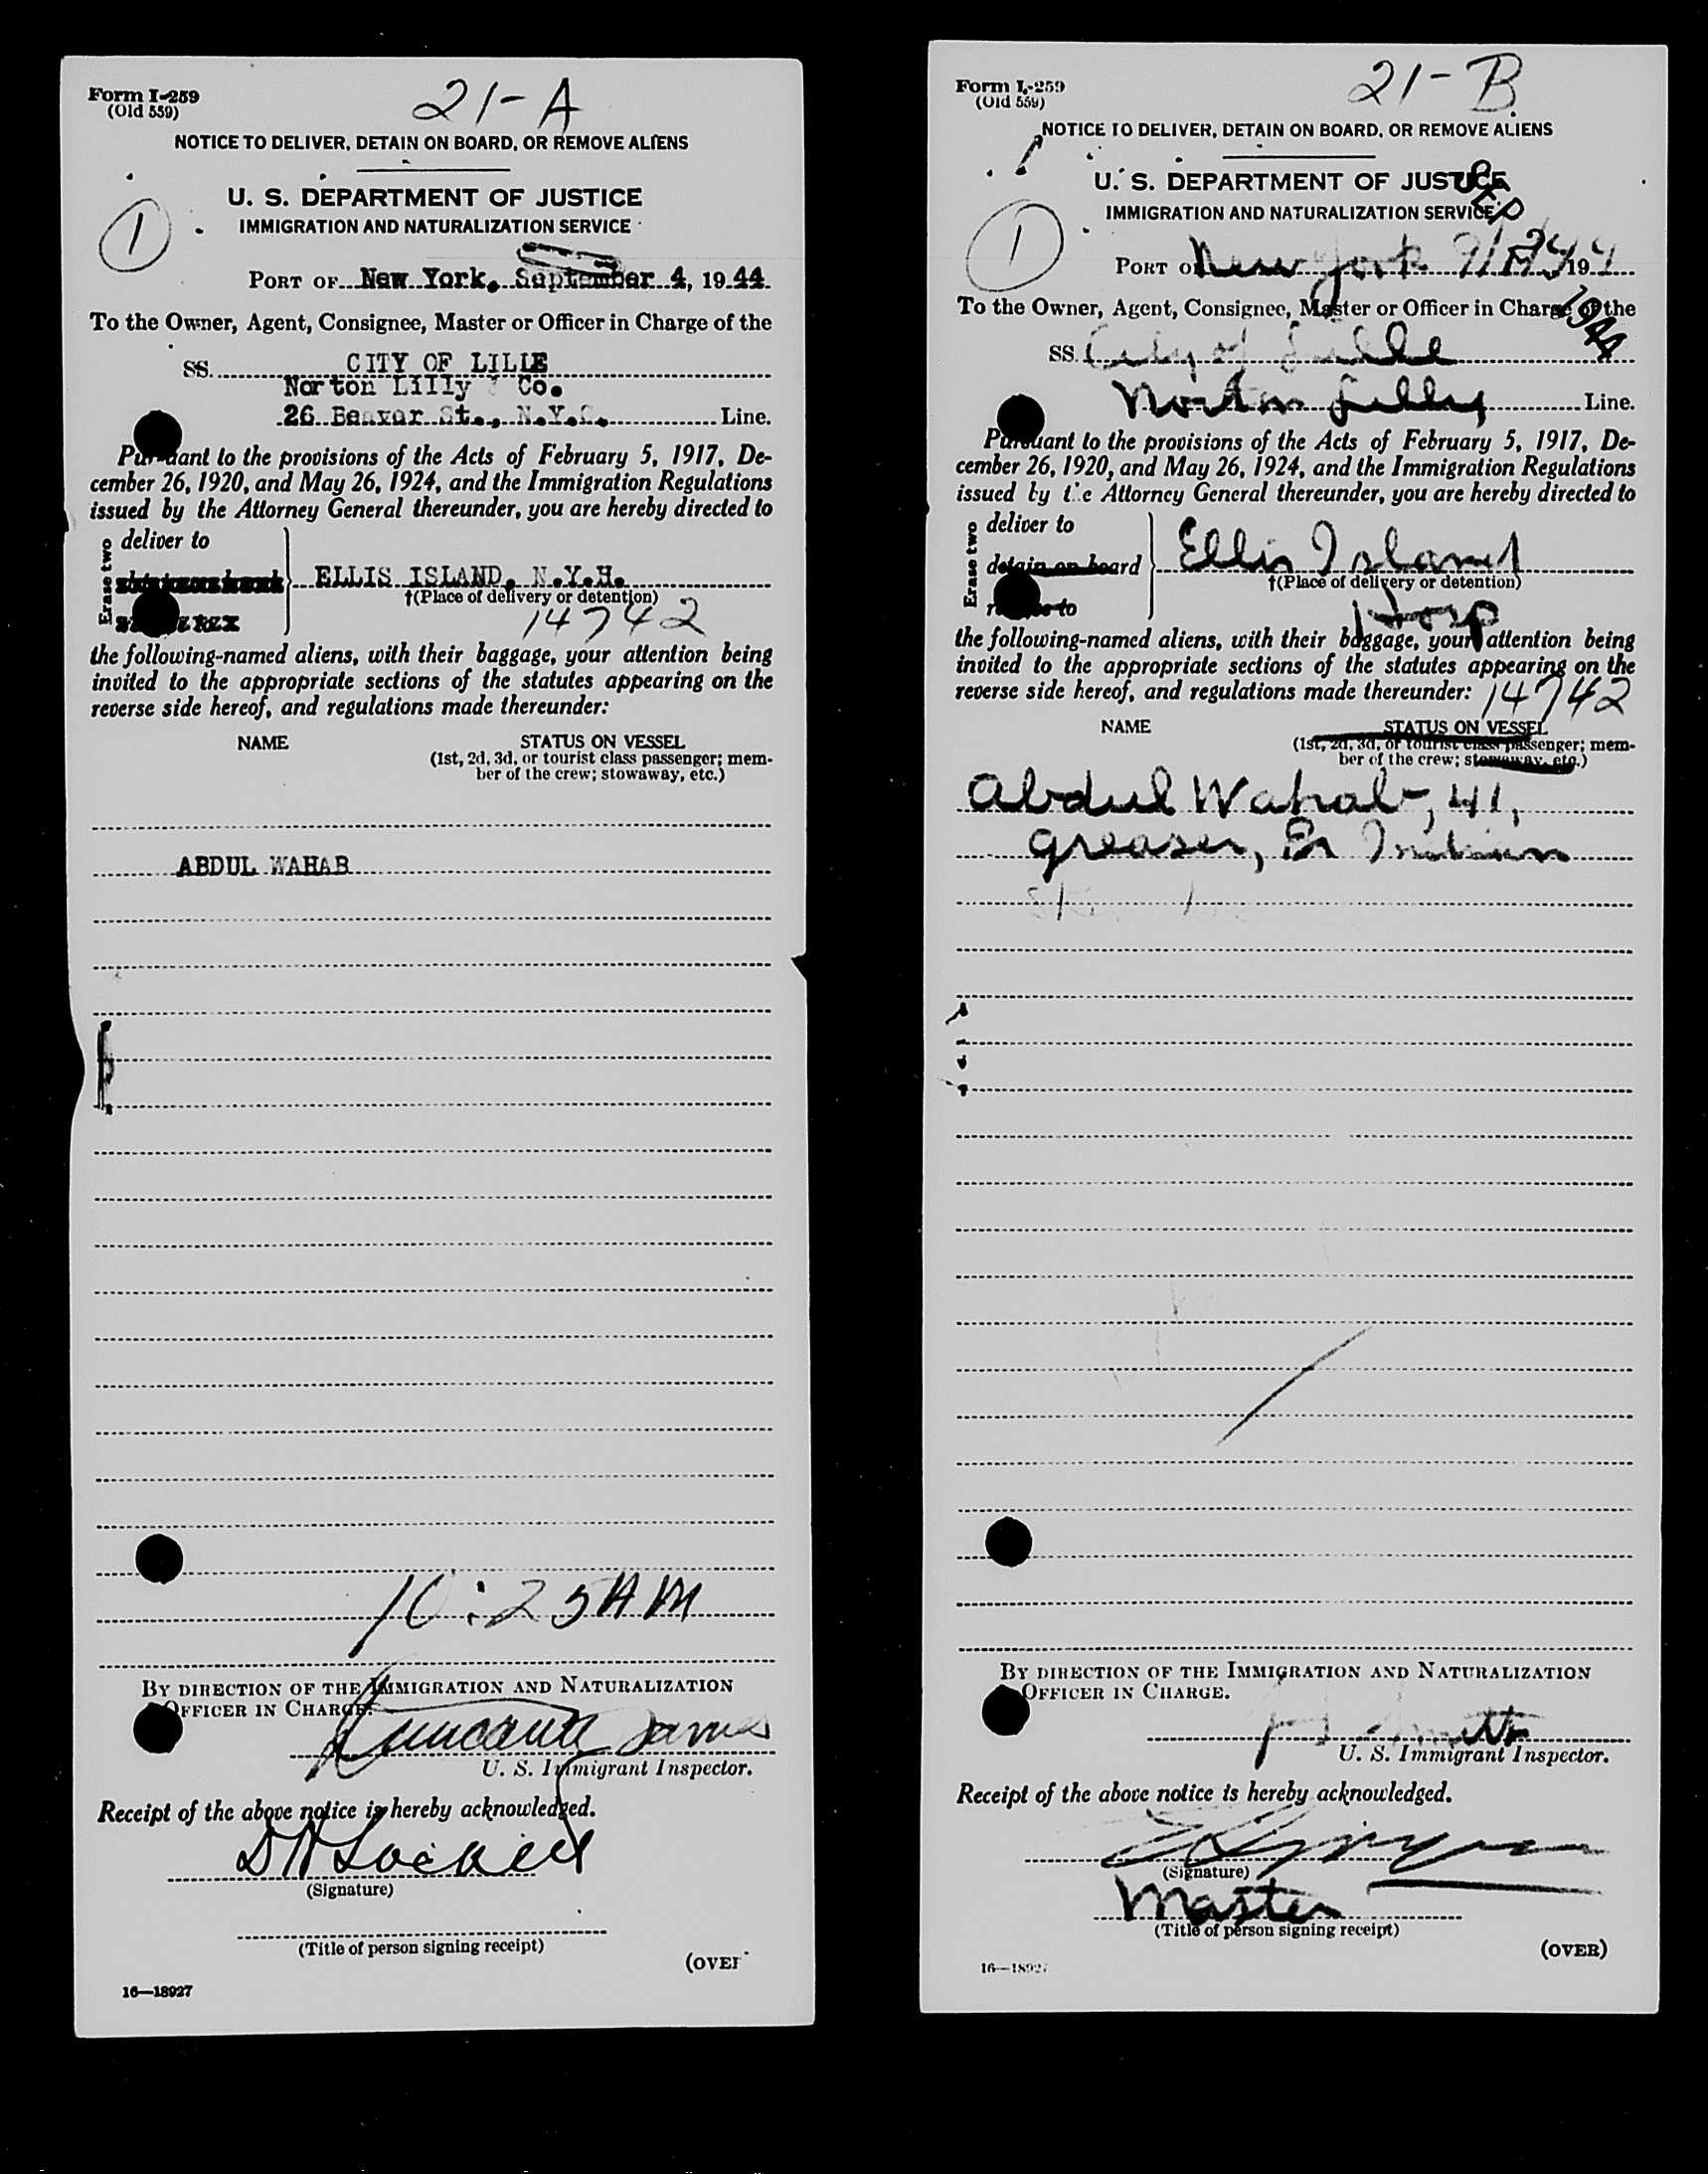 21-A
Form I-259
(Old 559)
NOTICE TO DELIVER, DETAIN ON BOARD, OR REMOVE ALIENS
U. S. DEPARTMENT OF JUSTICE
IMMIGRATION AND NATURALIZATION SERVICE
1
PORT OF New York, September 4, 1944
To the Owner, Agent, Consignee, Master or Officer in Charge of the
SS. CITY OF LILLE
Norton Lilly & Co.
26 Beaver St., N.Y.C. Line.
Pursuant to the provisions of the Acts of February 5, 1917, De-
cember 26, 1920, and May 26, 1924, and the Immigration Regulations
issued by the Attorney General thereunder, you are hereby directed to
Erase two
deliver to
ELLIS ISLAND, N.Y.H.
†(Place of delivery or detention)
14742
the following-named aliens, with their baggage, your attention being
invited to the appropriate sections of the statutes appearing on the
reverse side hereof, and regulations made thereunder:
NAME STATUS ON VESSEL
(1st, 2d, 3d, or tourist class passenger; mem-
ber of the crew; stowaway, etc.)
ABDUL WAHAB
10:25 AM
BY DIRECTION OF THE IMMIGRATION AND NATURALIZATION
OFFICER IN CHARGE.
U. S. Immigrant Inspector.
Receipt of the above notice is hereby acknowledged.
(Signature)
(Title of person signing receipt)
(OVER
16—18927
21-B
Form I-259
(Old 559)
NOTICE TO DELIVER, DETAIN ON BOARD, OR REMOVE ALIENS
U. S. DEPARTMENT OF JUSTICE
IMMIGRATION AND NATURALIZATION SERVICE
1
SEP 2 1944
PORT OF New York 19
To the Owner, Agent, Consignee, Master or Officer in Charge of the
SS. City of Lille
Norton Lilly Line.
Pursuant to the provisions of the Acts of February 5, 1917, De-
cember 26, 1920, and May 26, 1924, and the Immigration Regulations
issued by the Attorney General thereunder, you are hereby directed to
Erase two
deliver to
detain on board
Ellis Island
†(Place of delivery or detention)
remove to
Hosp
the following-named aliens, with their baggage, your attention being
invited to the appropriate sections of the statutes appearing on the
reverse side hereof, and regulations made thereunder: 14742
NAME STATUS ON VESSEL
(1st, 2d, 3d, or tourist class passenger; mem-
ber of the crew; stowaway, etc.)
Abdul Wahab, 41,
greaser, Br Indian
BY DIRECTION OF THE IMMIGRATION AND NATURALIZATION
OFFICER IN CHARGE.
U. S. Immigrant Inspector.
Receipt of the above notice is hereby acknowledged.
(Signature)
Master
(Title of person signing receipt)
(OVER)
16—18927